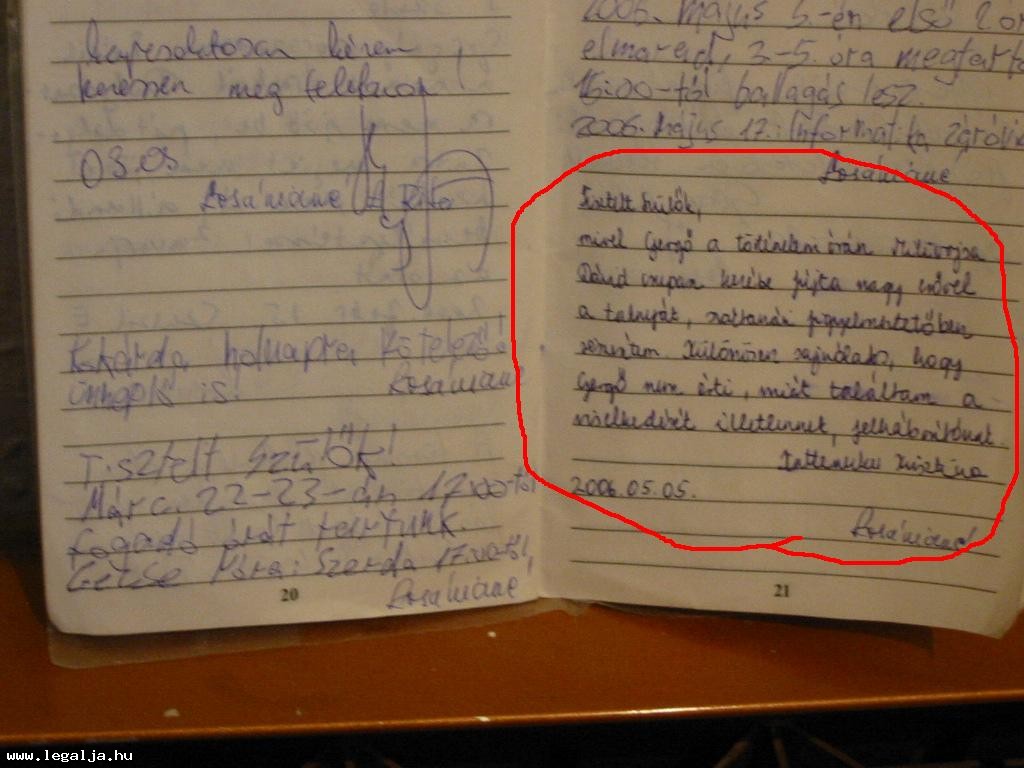 kérem
keressen meg telefonon!
03.03
Kosáriáné
holnapra kötelező
is!
Kosáriáné
Tisztelt Szülők!
Márc. 22-23-án 17:00-tól
fogadó órát tartunk.
Szerda 17:00-tól
Kosáriáné
20
2006. május 5-én első 2 ór
elmarad, 3-5. óra megtart
16:00-tól ballagás lesz.
2006. május 17. Informatika
Kosáriáné
Tisztelt Szülők,
mivel Gergő a történelem órán
Dávid csupán kezébe fújta nagy erővel
a taknyát, szaktanári figyelmeztetőben
részesítem. Különösen sajnálatos, hogy
Gergő nem érti, miért találtam a
viselkedését illetlennek, felháborítónak.
Krisztina
2006.05.05.
Kosáriáné
21
www.legalja.hu